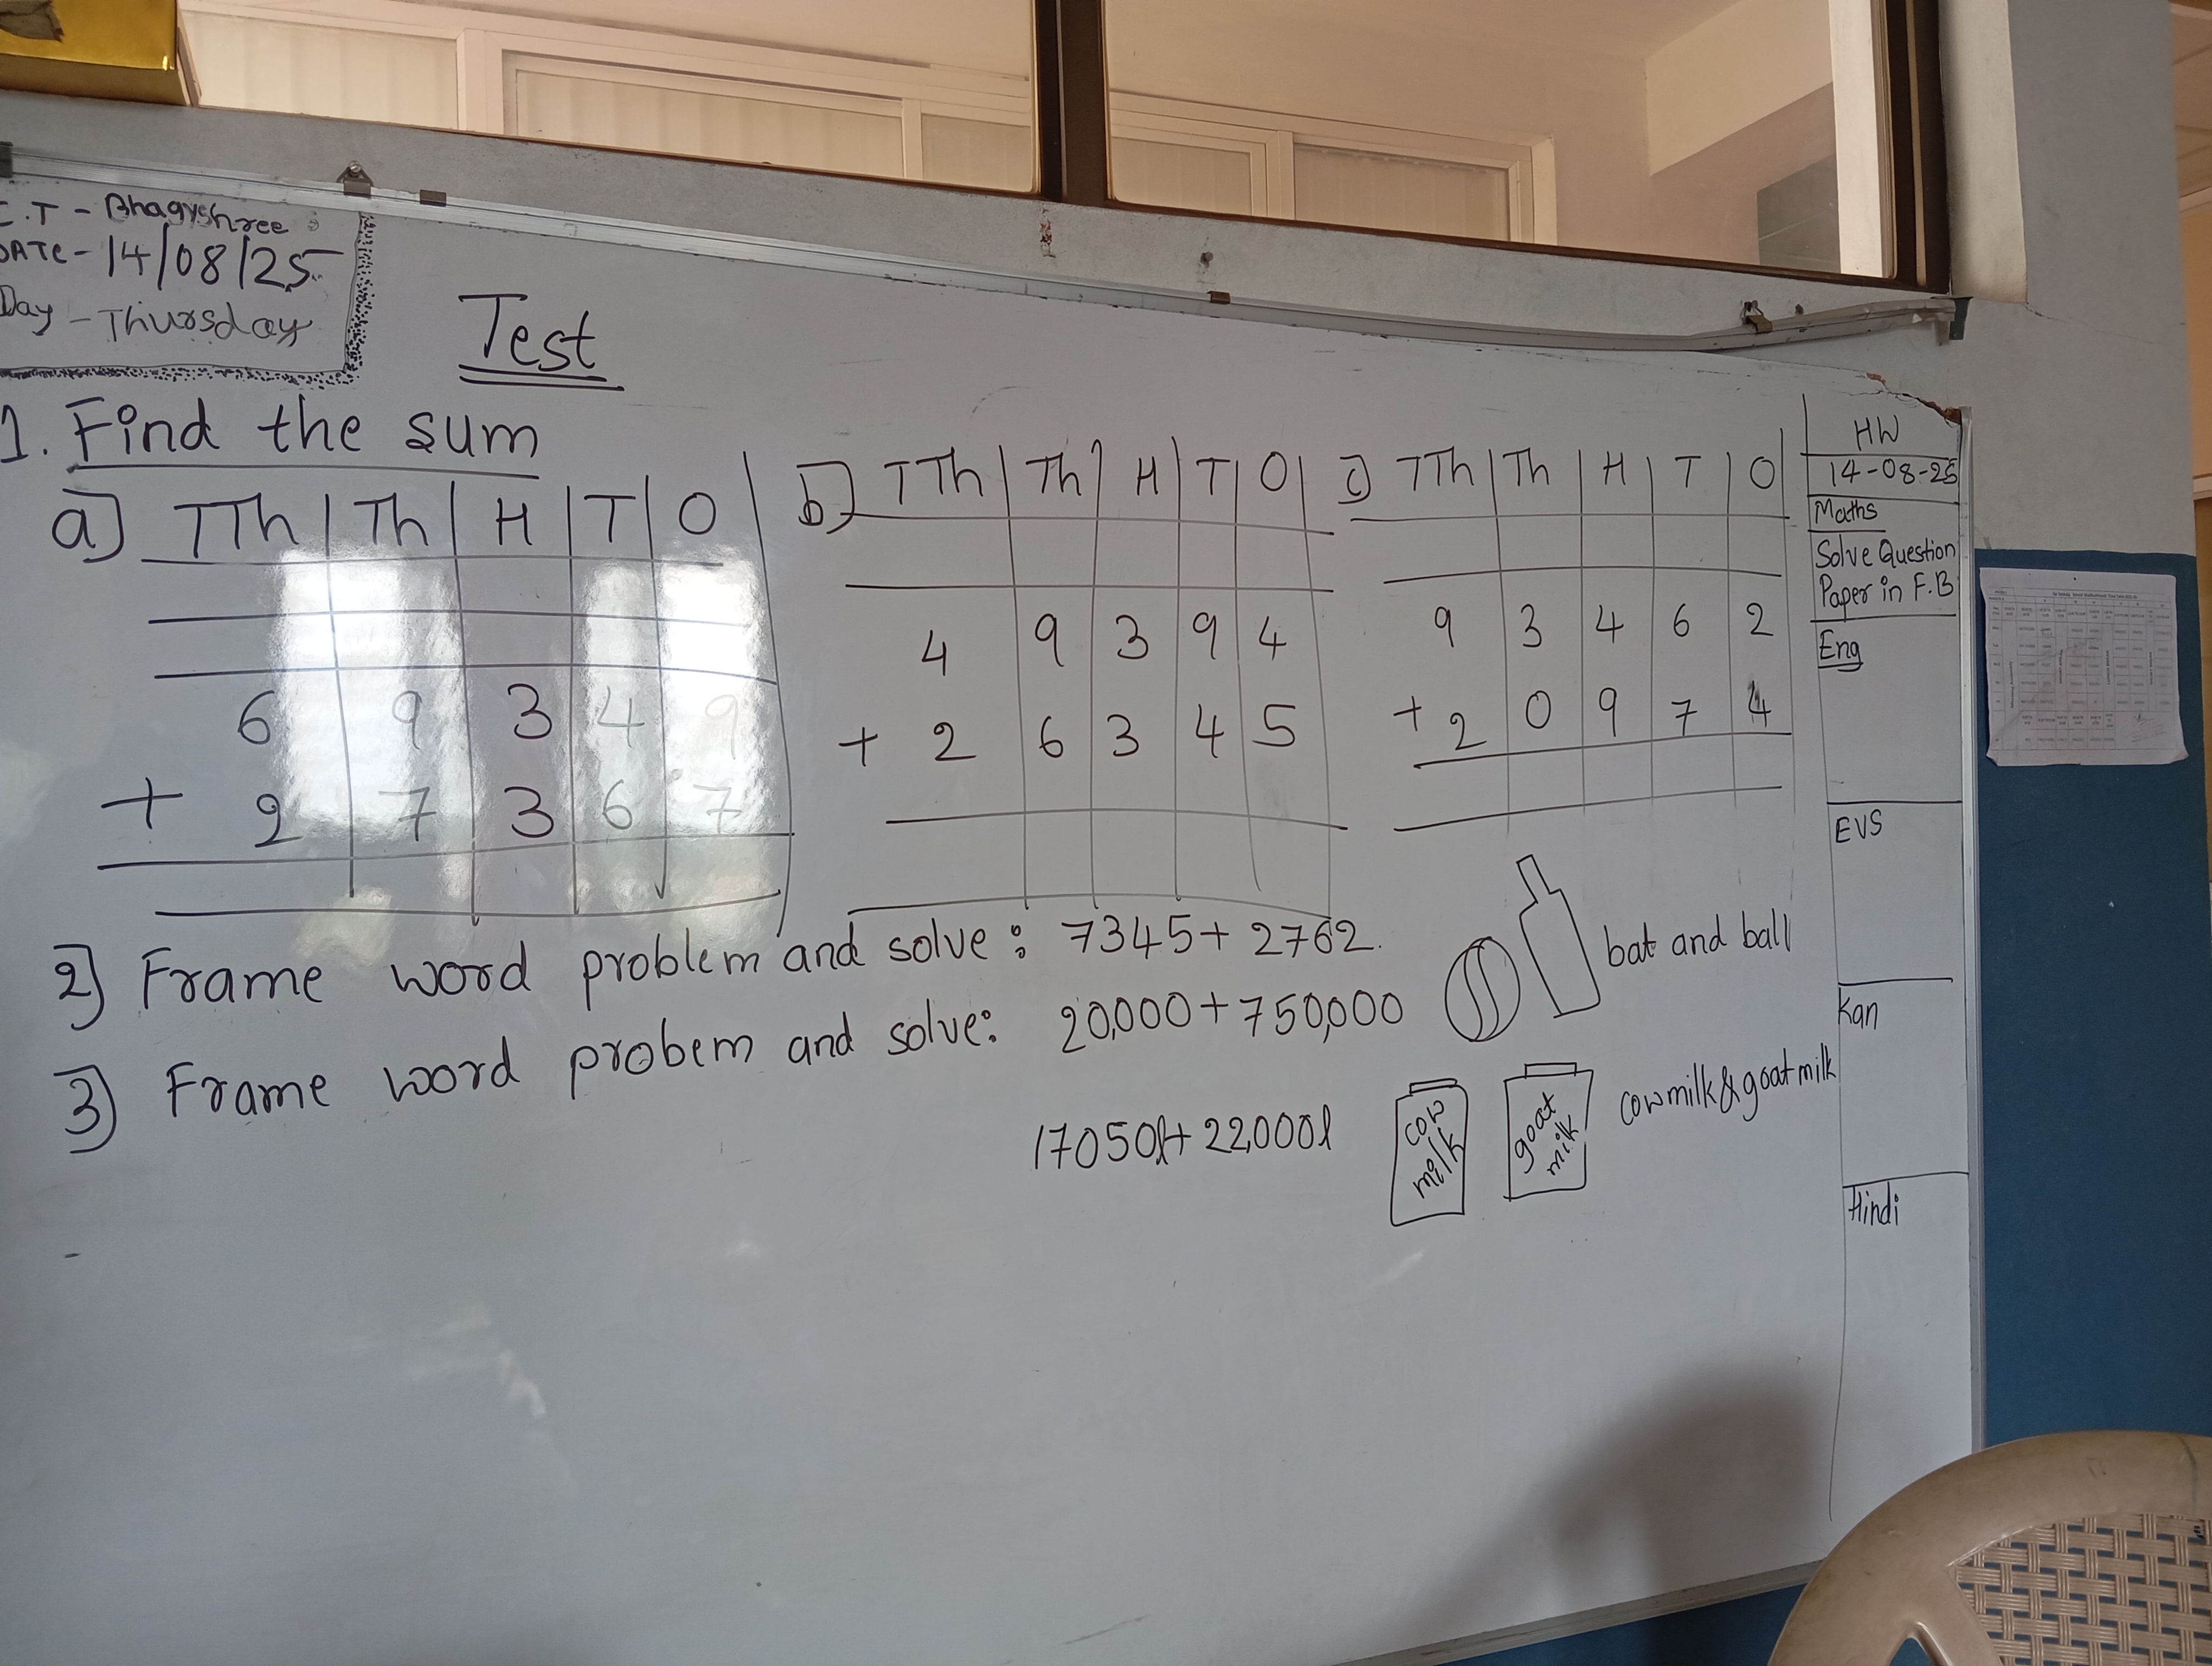 C.T - Bhagyshree
DATE - 14/08/25
Day - Thursday
Test
1. Find the sum
a) TTh Th H T O
6 9 3 4 9
+ 2 7 3 6 7
b) TTh Th H T O
4 9 3 9 4
+ 2 6 3 4 5
c) TTh Th H T O
9 3 4 6 2
+ 2 0 9 7 4
2) Frame word problem and solve : 7345 + 2762.
bat and ball
3) Frame word probem and solve: 20,000 + 750,000
17050l + 22,000l
cow
milk
goat
milk
cow milk & goat milk
HW
14-08-25
Maths
Solve Question
Paper in F.B
Eng
EVS
Kan
Hindi